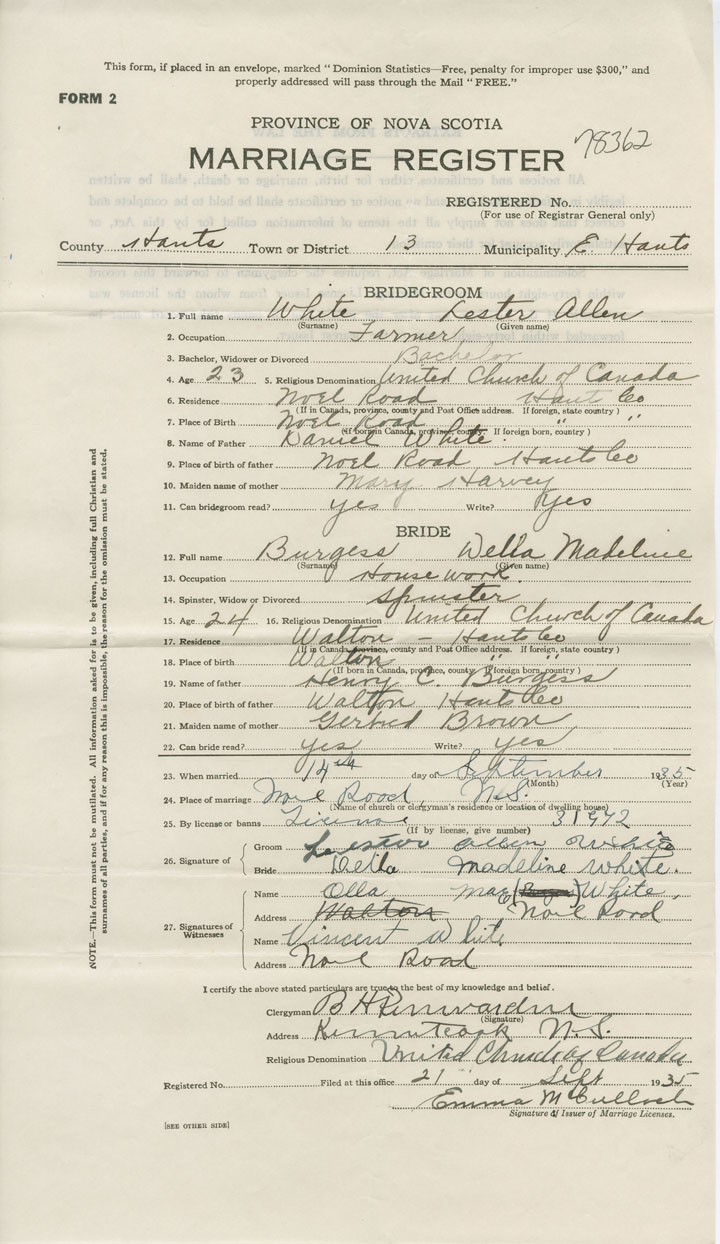 This form, if placed in an envelope, marked "Dominion Statistics—Free, penalty for improper use $300," and
properly addressed will pass through the Mail "FREE."
FORM 2
PROVINCE OF NOVA SCOTIA
78362
MARRIAGE REGISTER
REGISTERED No.
(For use of Registrar General only)
County Hants Town or District 13 Municipality E. Hants
BRIDEGROOM
1. Full name White Lester Allen
(Surname) (Given name)
2. Occupation Farmer
3. Bachelor, Widower or Divorced Bachelor
4. Age 23 5. Religious Denomination United Church of Canada
6. Residence Noel Road Hants Co
(If in Canada, province, county and Post Office address. If foreign, state country)
7. Place of Birth Noel Road " "
(If born in Canada, province, county. If foreign born, country)
8. Name of Father Daniel White.
9. Place of birth of father Noel Road Hants Co
10. Maiden name of mother Mary Harvey
11. Can bridegroom read? yes Write? Yes
BRIDE
12. Full name Burgess Della Madeline
(Surname) (Given name)
13. Occupation Housework.
14. Spinster, Widow or Divorced Spinster
15. Age 24 16. Religious Denomination United Church of Canada
17. Residence Walton - Hants Co
(If in Canada, province, county and Post Office address. If foreign, state country)
18. Place of birth Walton " "
(If born in Canada, province, county. If foreign born, country)
19. Name of father Henry C. Burgess
20. Place of birth of father Walton Hants Co
21. Maiden name of mother Gertrud Brown
22. Can bride read? yes Write? yes
23. When married 14th day of September 1935
(Month) (Year)
24. Place of marriage Noel Road, N.S.
(Name of church or clergyman's residence or location of dwelling house)
25. By license or banns License 31972
(If by license, give number)
26. Signature of
Groom Lester Allen White
Bride Della Madeline White.
27. Signatures of Witnesses
Name Olla Mae White.
Address Walton Noel Road
Name Vincent White
Address Noel Road
I certify the above stated particulars are true to the best of my knowledge and belief.
Clergyman B H
(Signature)
Address Kennetcook N.S.
Religious Denomination United Church of Canada
Registered No. Filed at this office 21 day of Sept 1935
Emma McCulloch
Signature of Issuer of Marriage Licenses.
[SEE OTHER SIDE]
NOTE.—This form must not be mutilated. All information asked for is to be given, including full Christian and
surnames of all parties, and if for any reason this is impossible, the reason for the omission must be stated.